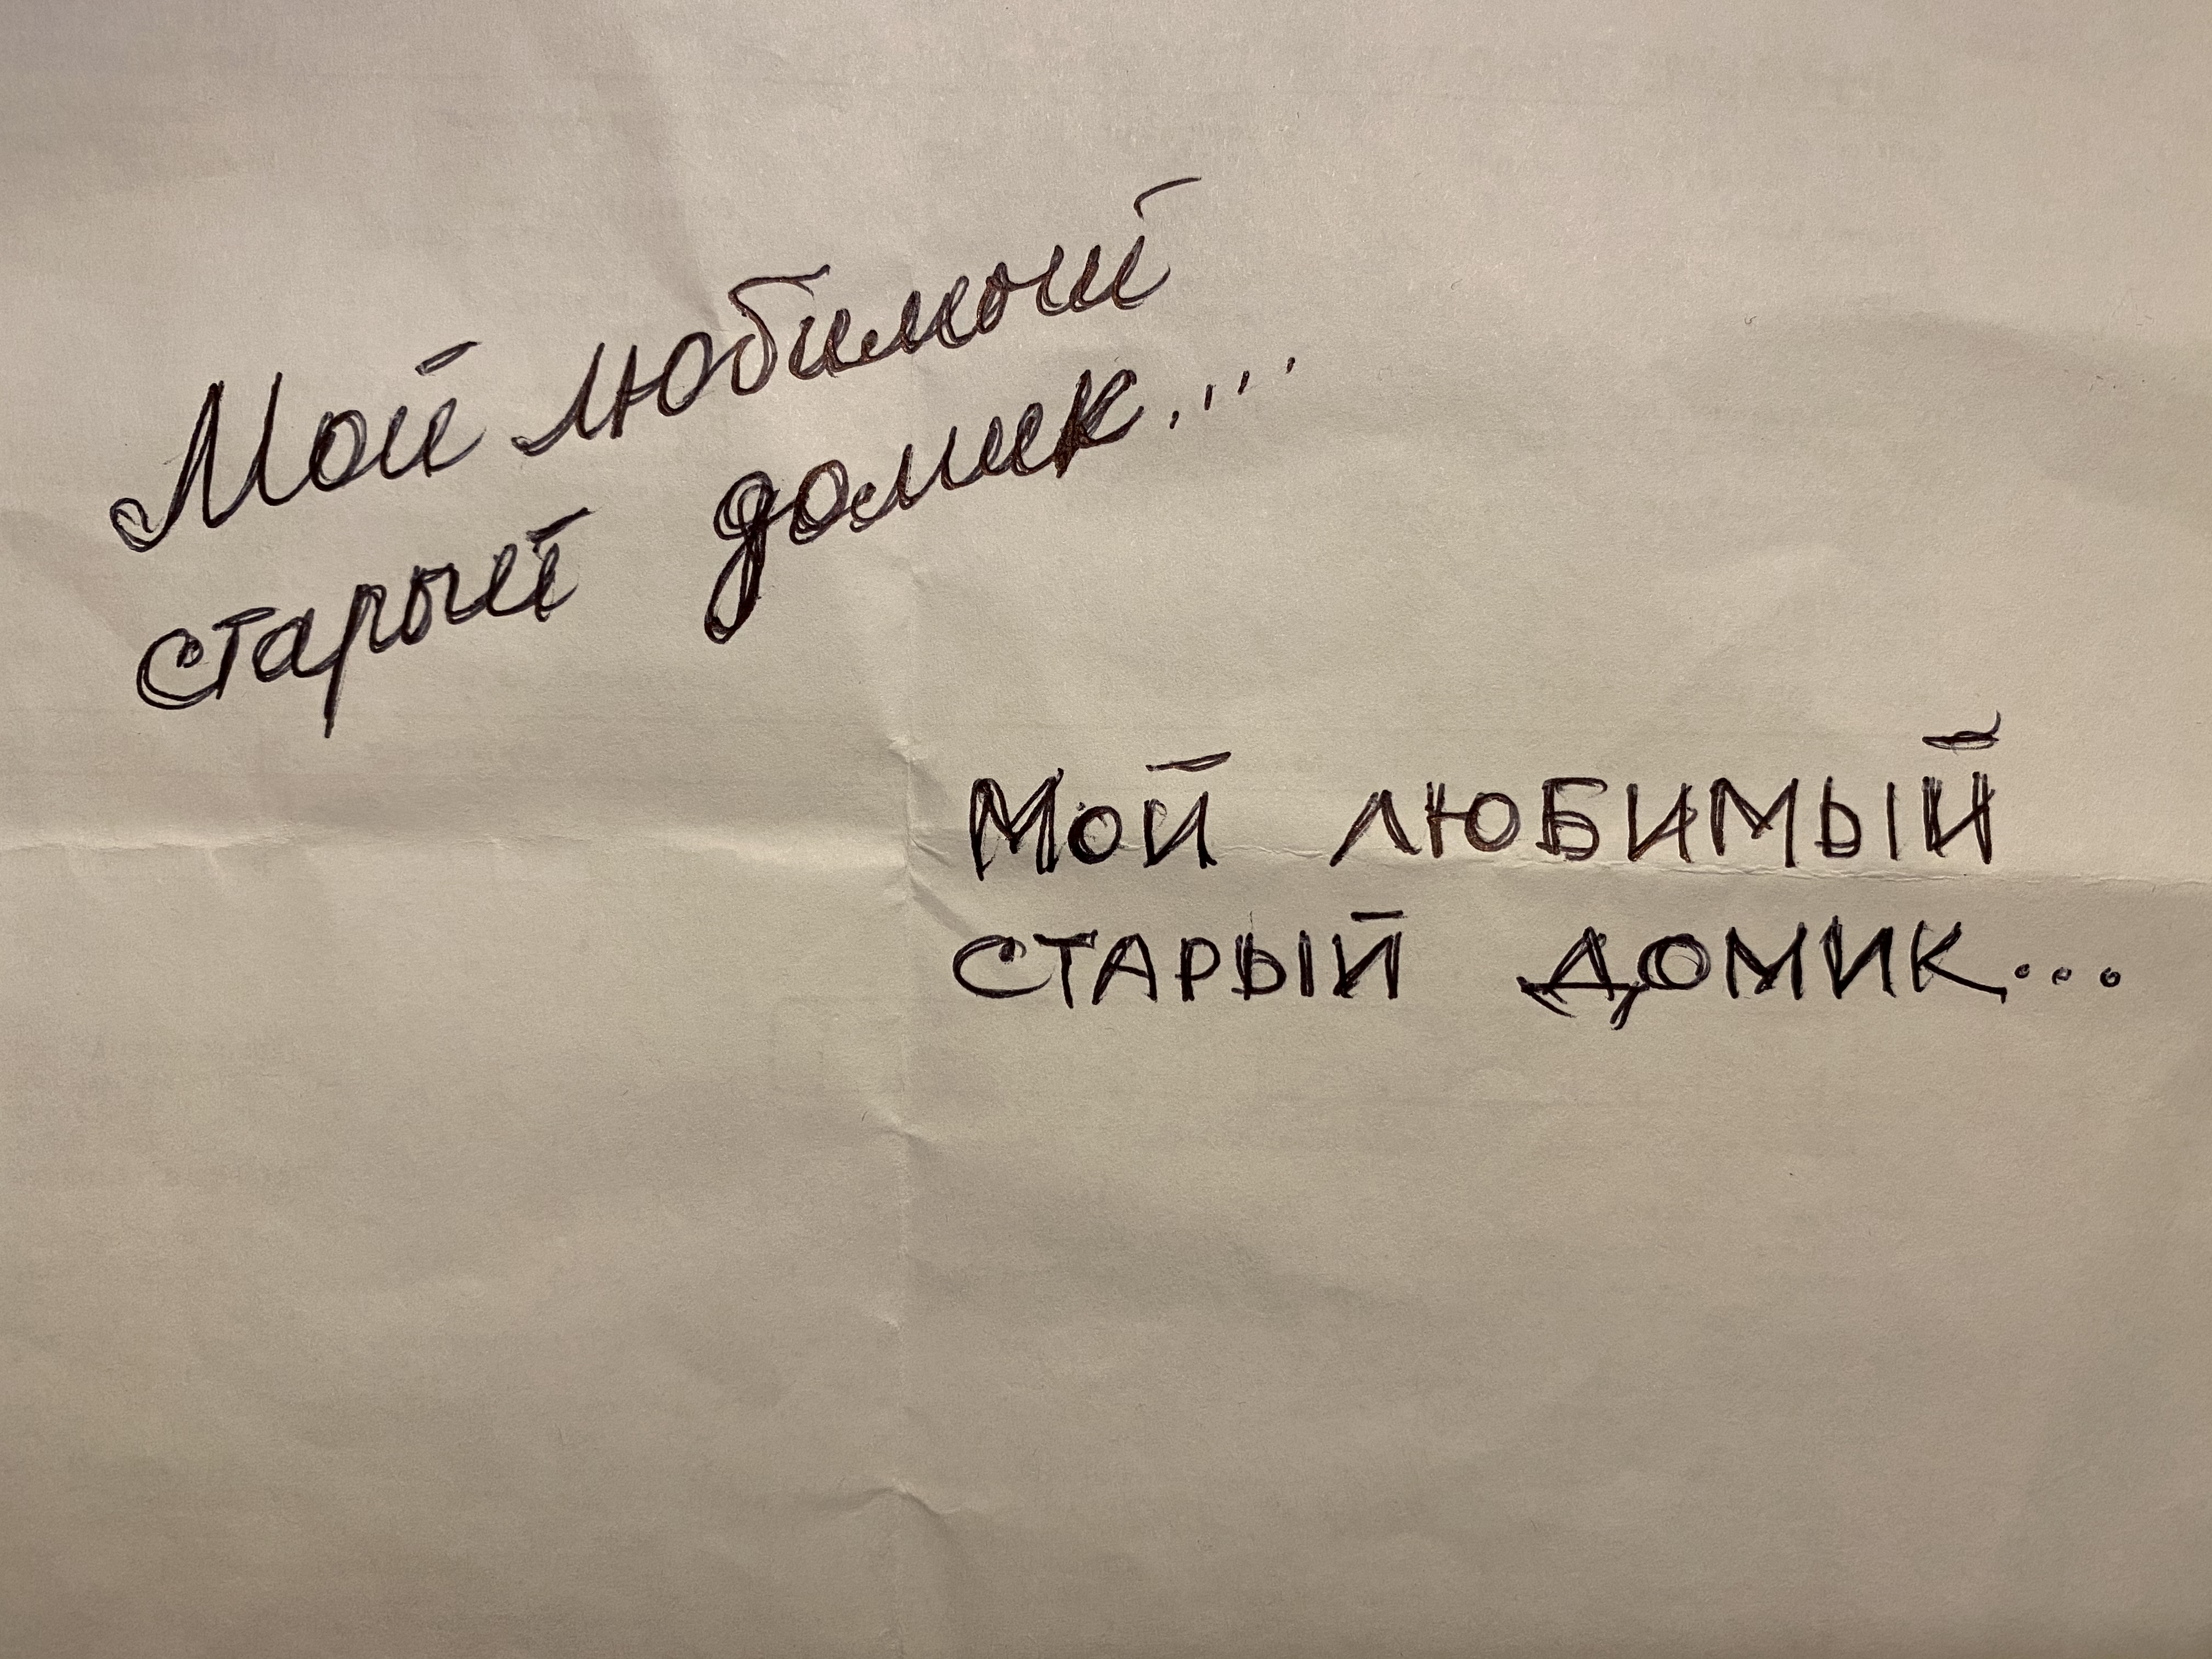 Мой любимый
старый домик...
Мой ЛЮБИМЫЙ
СТАРЫЙ ДОМИК...